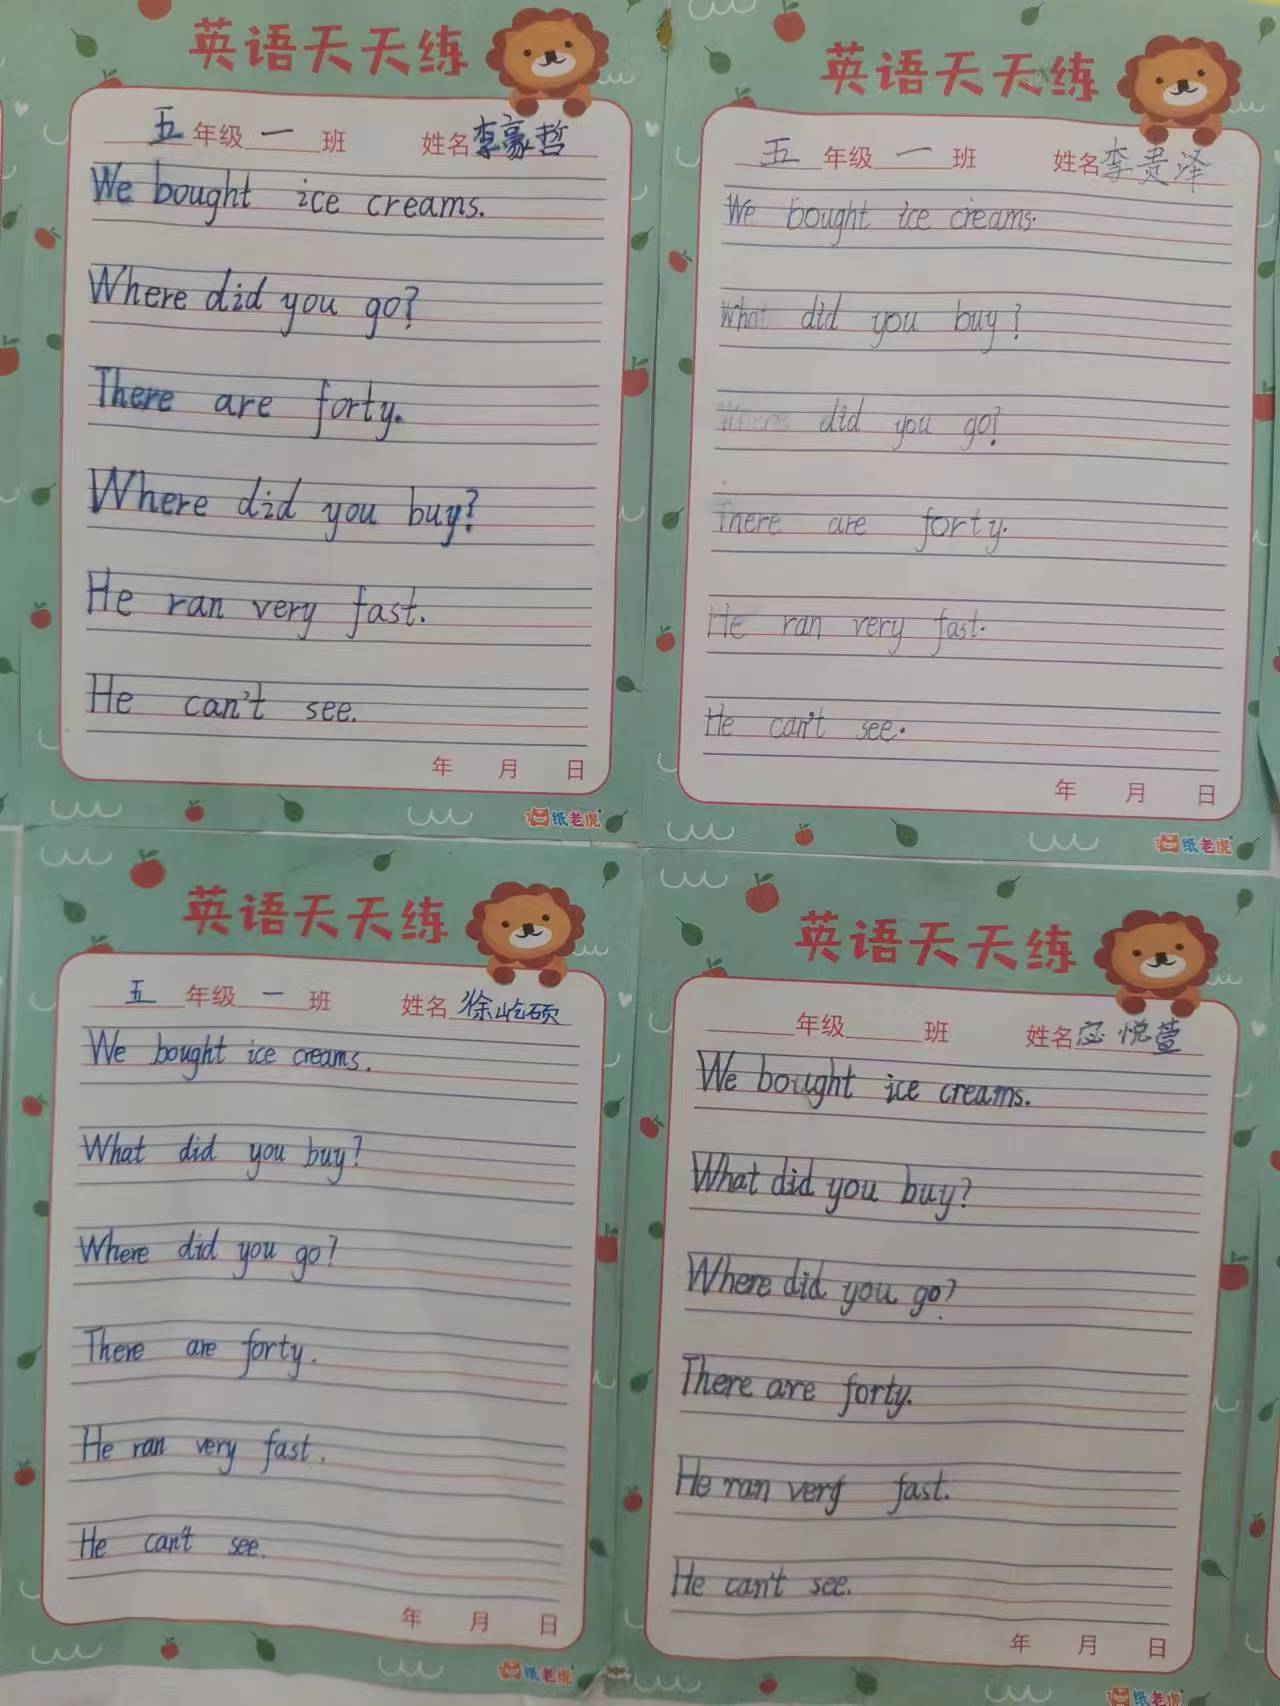 英语天天练
五年级一班 姓名李豪哲
We bought ice creams.
Where did you go?
There are forty.
Where did you buy?
He ran very fast.
He can't see.
年 月 日
纸老虎
英语天天练
五年级一班 姓名李贵泽
We bought ice creams.
What did you buy?
Where did you go?
There are forty.
He ran very fast.
He can't see.
年 月 日
纸老虎
英语天天练
五年级一班 姓名徐屹硕
We bought ice creams.
What did you buy?
Where did you go?
There are forty.
He ran very fast.
He can't see.
年 月 日
纸老虎
英语天天练
年级 班 姓名悦萱
We bought ice creams.
What did you buy?
Where did you go?
There are forty.
He ran very fast.
He can't see.
年 月 日
纸老虎